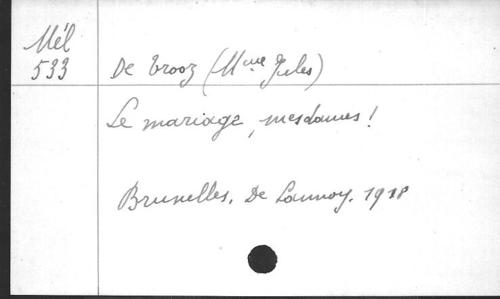 Mél
533
De Trooz (Mme Jules)
Le mariage, mesdames!
Bruxelles. De Lannoy. 1918